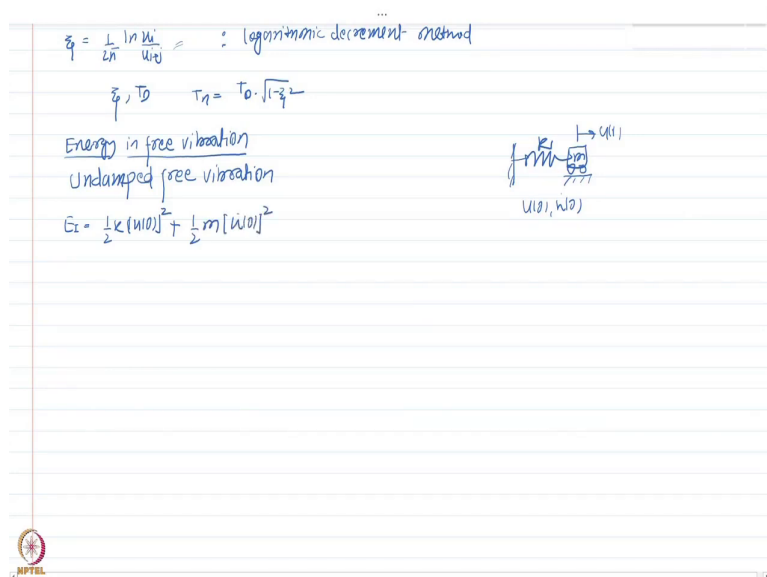 ...
ξ = 1/2π ln ui/ui+j = : logarithmic decrement method
ξ, TD Tn = TD · √1-ξ²
Energy in free vibration
Undamped free vibration
EI = 1/2 k[u(0)]² + 1/2 m[u̇(0)]²
u(t)
k
m
u(0), u̇(0)
NPTEL